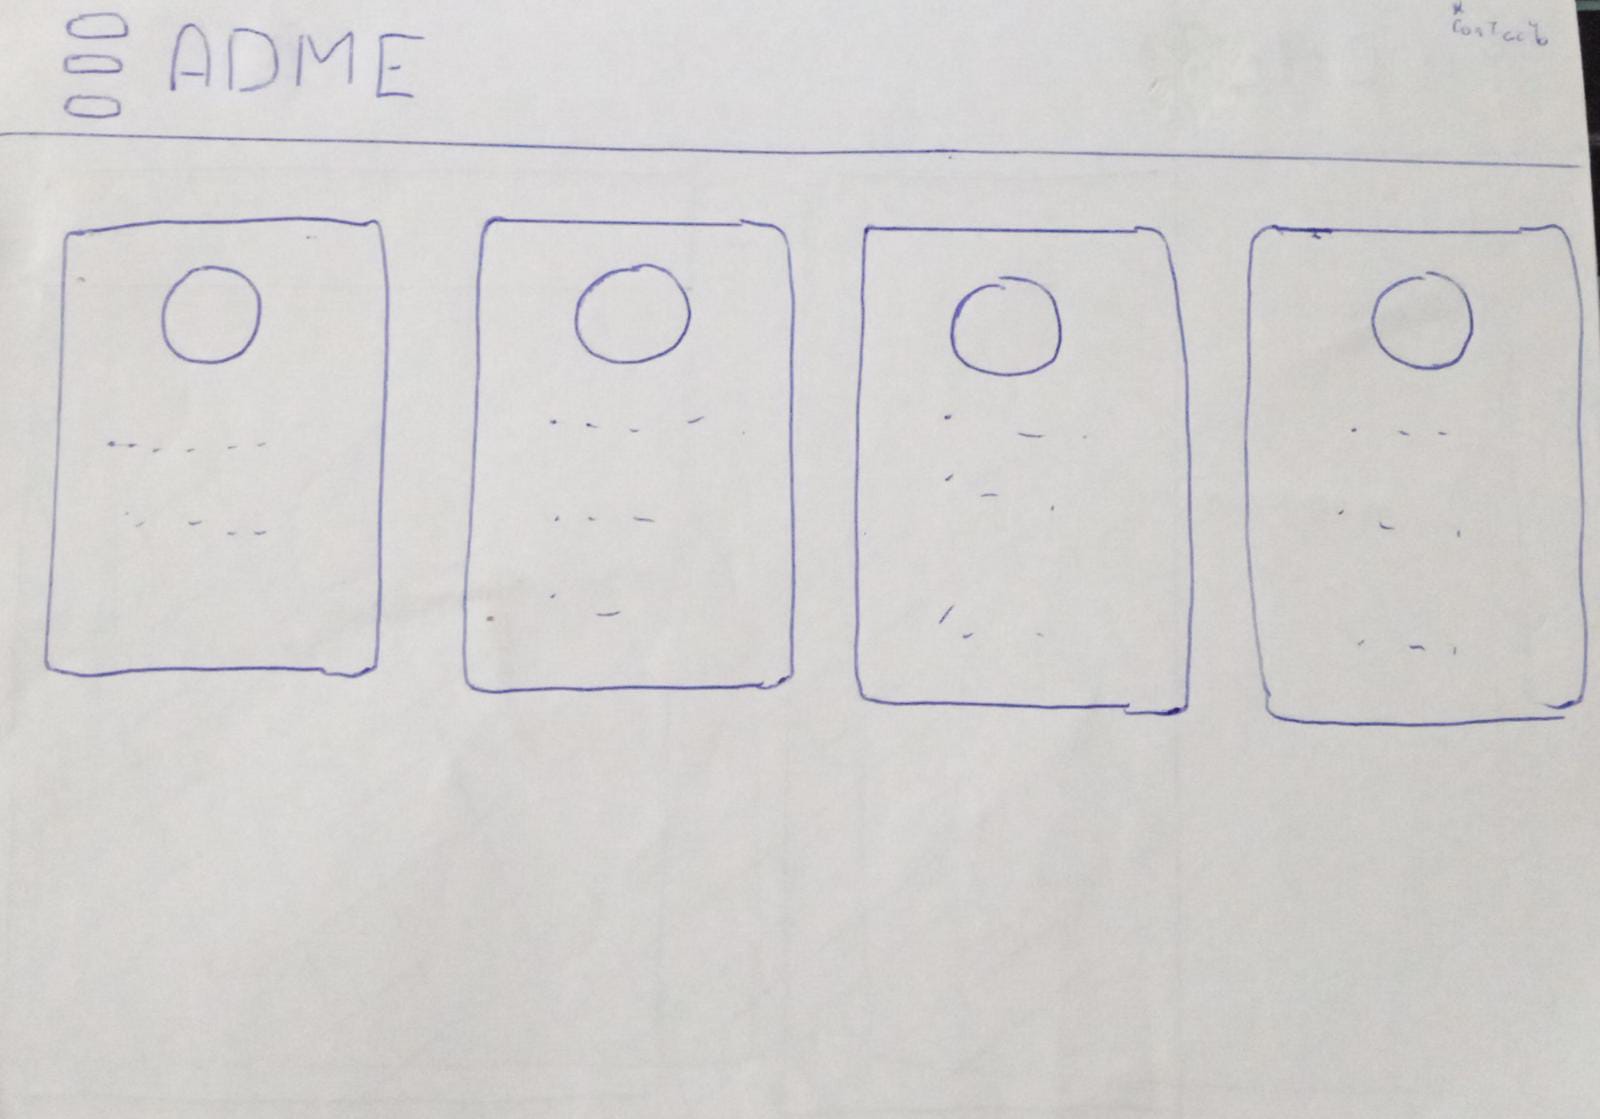 ADME
Contacto